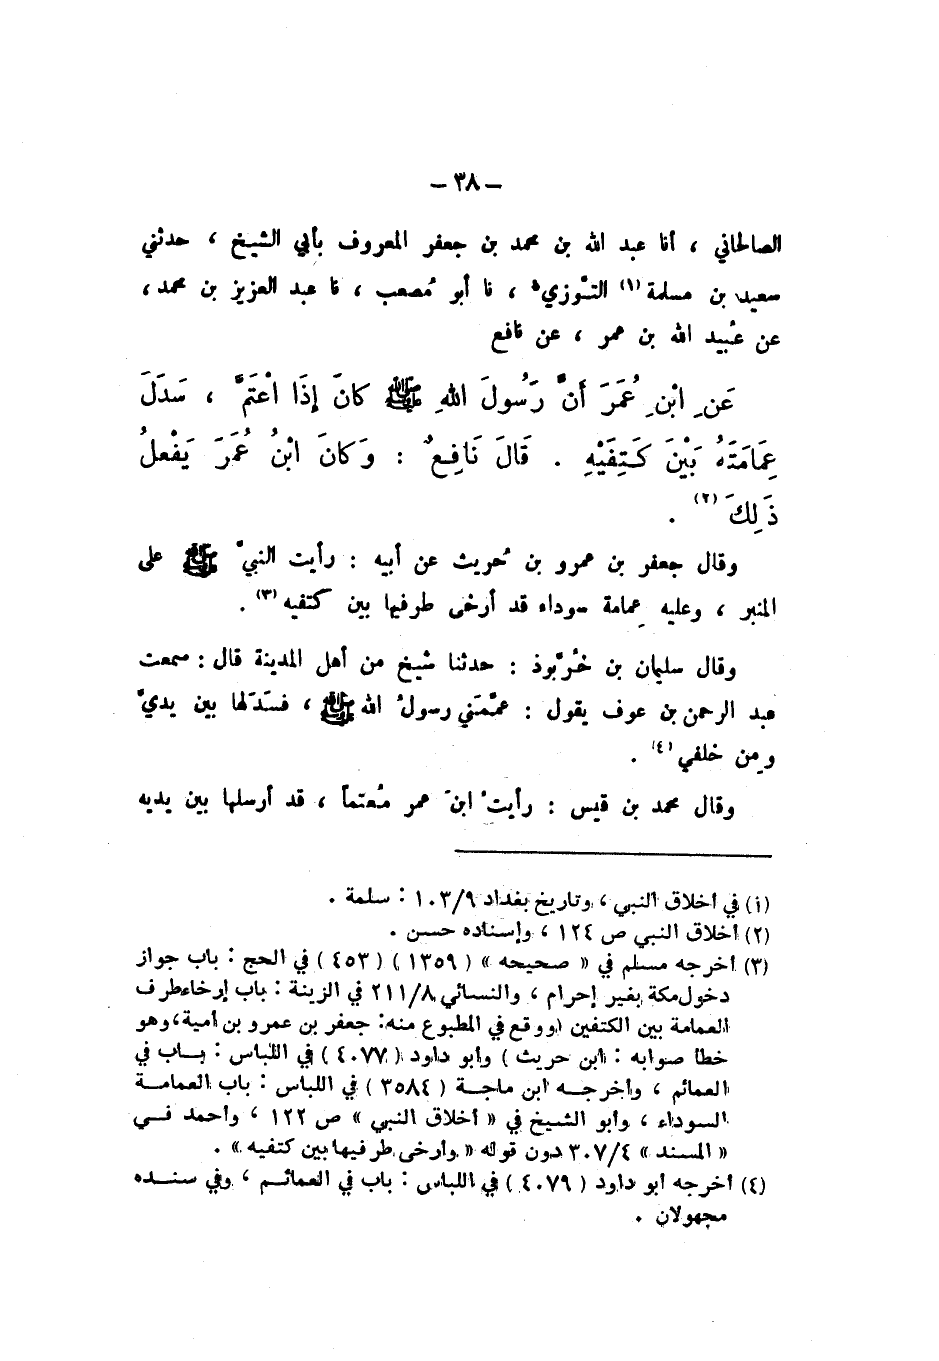 – ٣٨ –
الصالحاني ، أنا عبد الله بن محمد بن جعفر المعروف بأبي الشيخ ، حدثني
سعيد بن مسلمة (١) التَّوزيُّ ، نا أبو مُصعب ، نا عبد العزيز بن محمد ،
عن عُبيد الله بن عمر ، عن نافع
عَنِ ابْنِ عُمَرَ أَنَّ رَسُولَ اللهِ ﷺ كانَ إِذَا اعْتَمَّ ، سَدَلَ
عِمَامَتَهُ بَيْنَ كَتِفَيْهِ . قَالَ نَافِعٌ : وَكانَ ابْنُ عُمَرَ يَفْعلُ
ذَلِكَ (٢) .
وقال جعفر بن عمرو بن حُريث عن أبيه : رأيت النبيَّ ﷺ على
المنبر ، وعليه عِمامة سوداء قد أرخى طرفيها بين كتفيه (٣) .
وقال سليمان بن خَرَّبوذ : حدثنا شيخ من أهل المدينة قال : سمعت
عبد الرحمن بن عوف يقول : عمَّمَني رسولُ الله ﷺ ، فسَدَلَها بين يديَّ
ومِن خلفي (٤) .
وقال محمد بن قيس : رأيتُ ابنَ عمر مُعتماً ، قد أرسلها بين يديه
(١) في أخلاق النبي ، وتاريخ بغداد ١٠٣/٩ : سلمة .
(٢) أخلاق النبي ص ١٢٤ ، وإسناده حسن .
(٣) أخرجه مسلم في « صحيحه » ( ١٣٥٩ ) ( ٤٥٣ ) في الحج : باب جواز
دخول مكة بغير إحرام ، والنسائي ٢١١/٨ في الزينة : باب إرخاء طرف
العمامة بين الكتفين (ووقع في المطبوع منه: جعفر بن عمرو بن أمية، وهو
خطأ صوابه : ابن حريث ) وأبو داود ( ٤٠٧٧ ) في اللباس : بــاب في
العمائم ، وأخرجــه ابن ماجــة ( ٣٥٨٤ ) في اللباس : باب العمامــة
السوداء ، وأبو الشيخ في « أخلاق النبي » ص ١٢٢ ، وأحمد فــي
« المسند » ٣٠٧/٤ دون قوله « وأرخى طرفيها بين كتفيه » .
(٤) أخرجه أبو داود ( ٤٠٧٩ ) في اللباس : باب في العمائــم ، وفي سنــده
مجهولان .